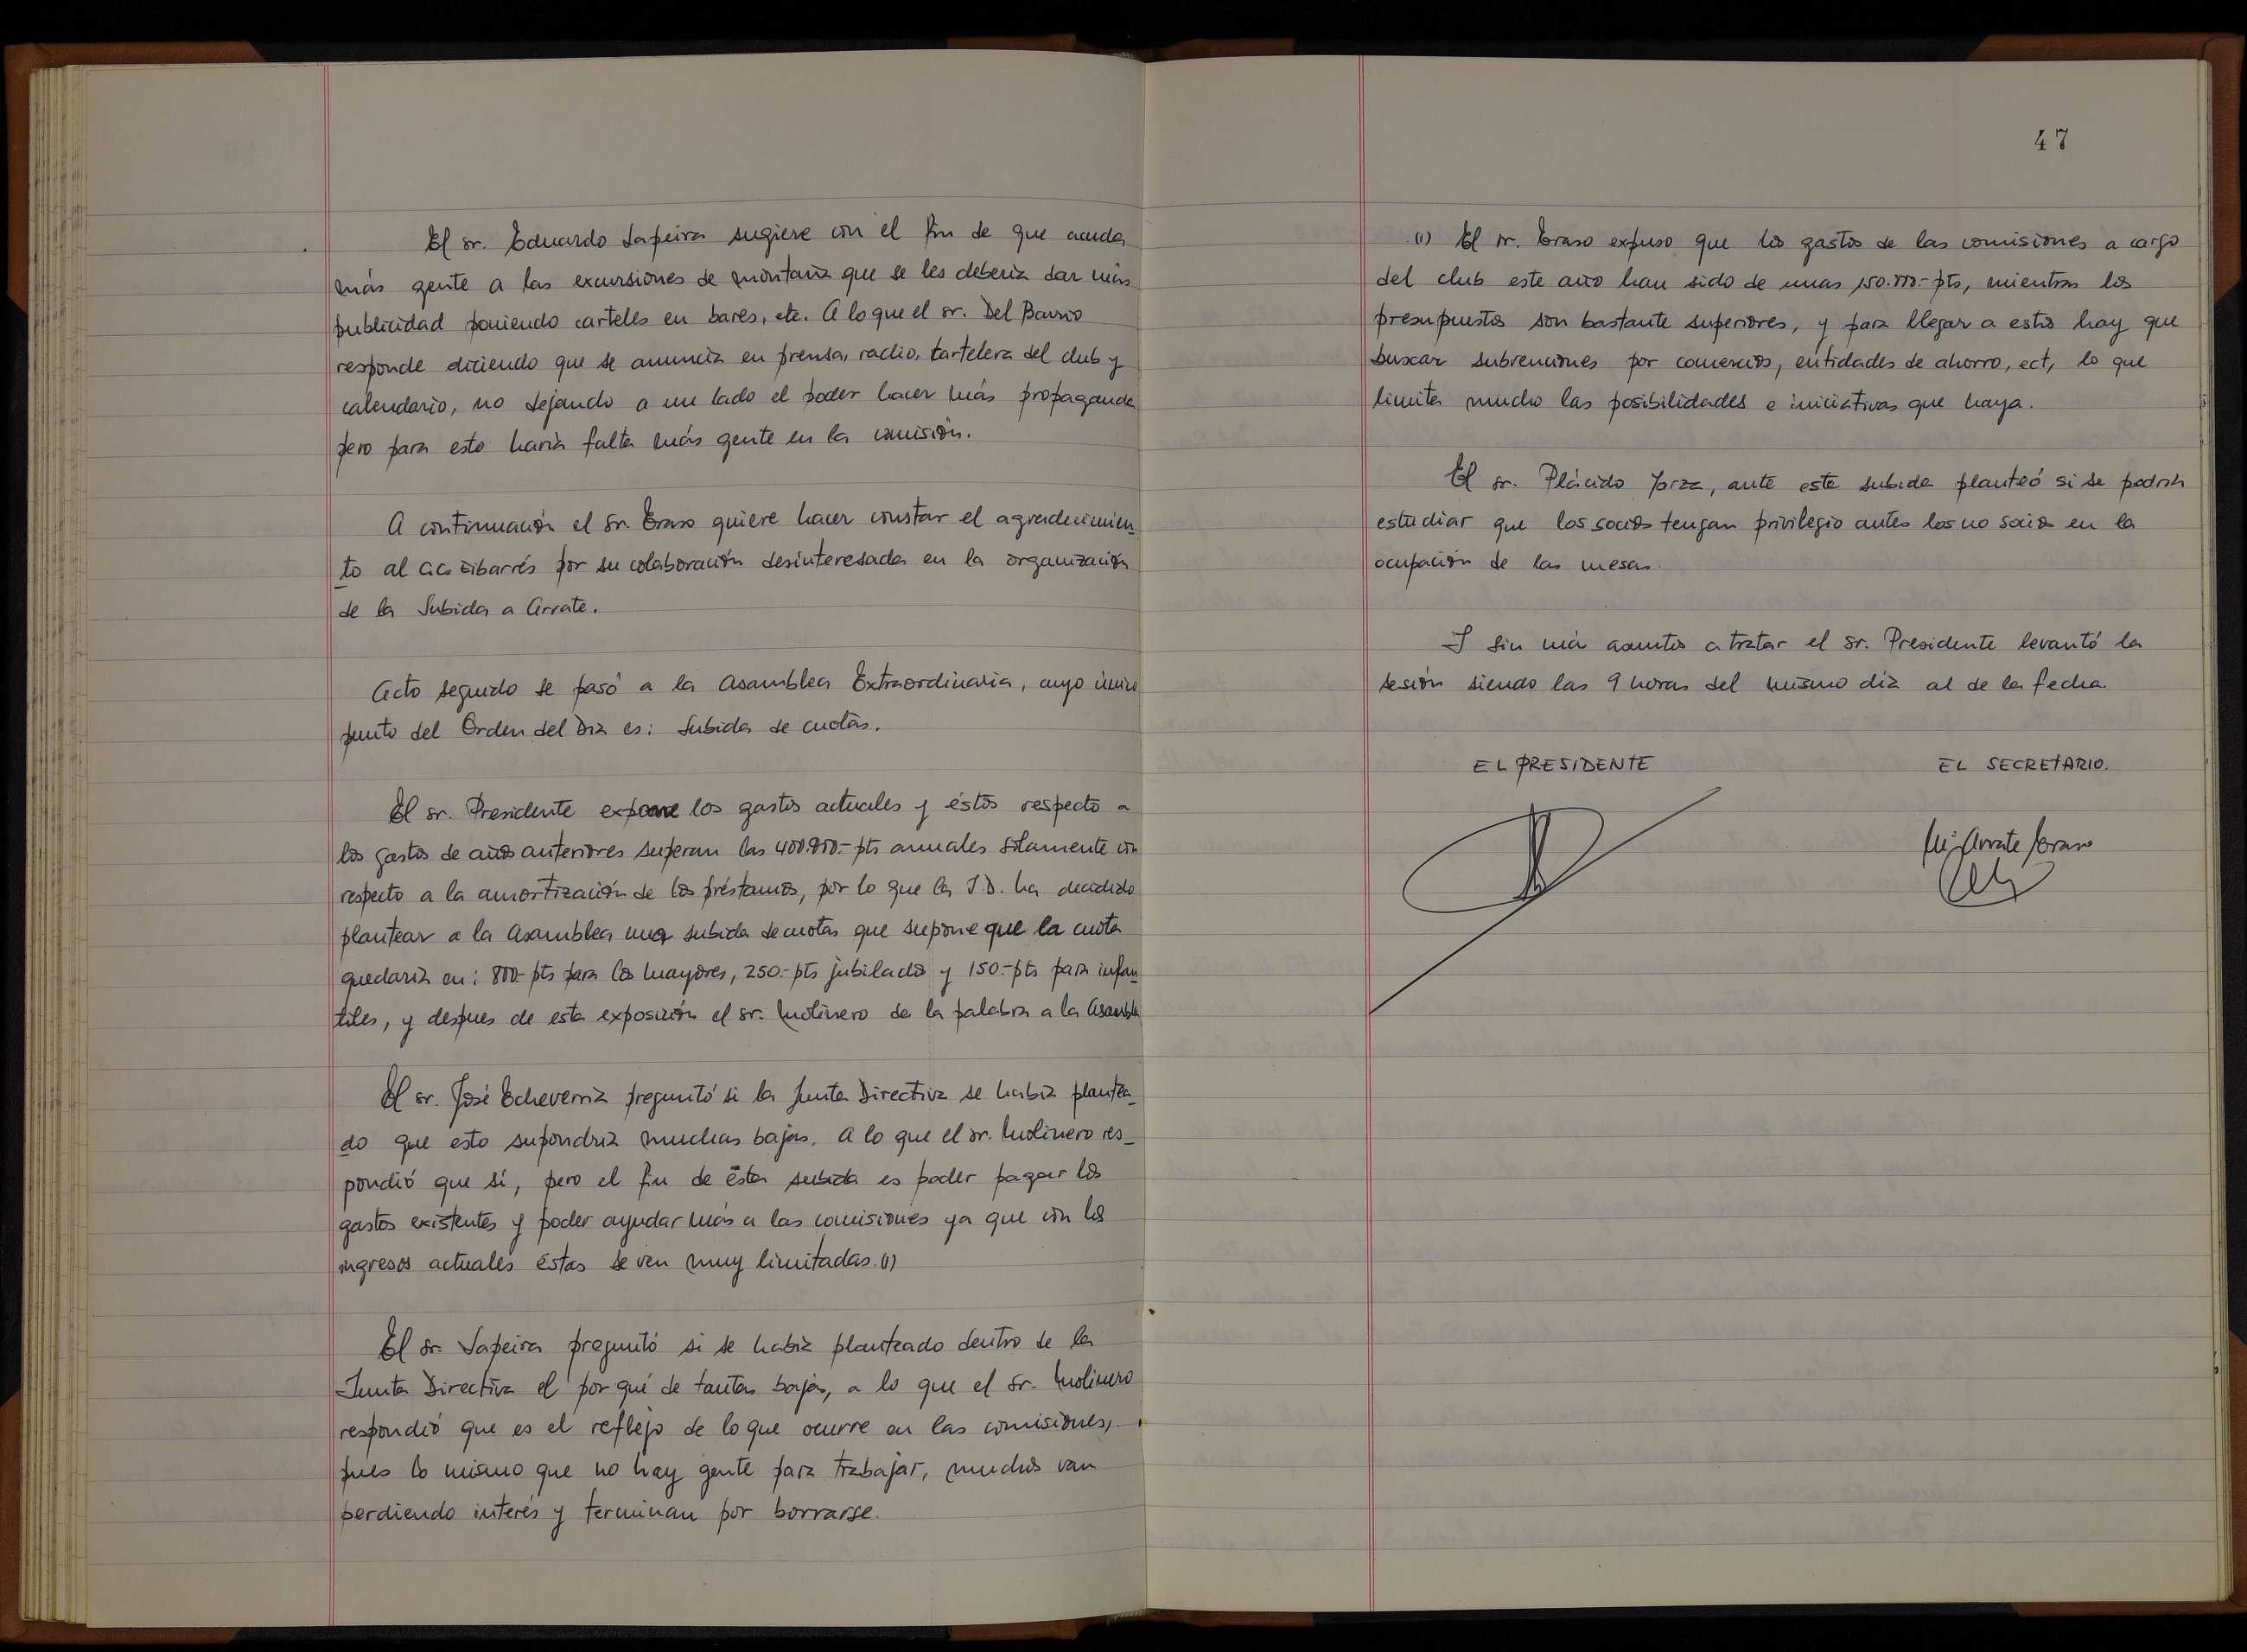 El sr. Eduardo Lapeira sugiere con el fin de que acuda
más gente a las excursiones de montaña que se les debería dar más
publicidad poniendo carteles en bares, etc. A lo que el sr. Del Barrio
responde diciendo que se anuncia en prensa, radio, cartelera del club y
calendario, no dejando a un lado el poder hacer más propaganda
pero para esto haría falta más gente en la comisión.
A continuación el Sr. Eraso quiere hacer constar el agradecimien_
to al C.C. Eibarrés por su colaboración desinteresada en la organización
de la Subida a Arrate.
Acto seguido se pasó a la Asamblea Extraordinaria, cuyo único
punto del Orden del Día es: Subida de cuotas.
El sr. Presidente expone los gastos actuales y éstos respecto a
los gastos de años anteriores superan las 400.000.- pts anuales solamente con
respecto a la amortización de los préstamos, por lo que la J.D. ha decidido
plantear a la Asamblea una subida de cuotas que supone que la cuota
quedaría en: 800.- pts para los mayores, 250.- pts jubilados y 150.- pts para infan_
tiles, y despues de esta exposición el sr. Molinero da la palabra a la Asamblea
El sr. José Echeverría preguntó si la Junta Directiva se había plantea_
do que esto supondría muchas bajas. A lo que el sr. Molinero res_
pondió que sí, pero el fin de ésta subida es poder pagar los
gastos existentes y poder ayudar más a las comisiones ya que con los
ingresos actuales éstas se ven muy limitadas. (1)
El sr. Lapeira preguntó si se había planteado dentro de la
Junta Directiva el por qué de tantas bajas, a lo que el sr. Molinero
respondió que es el reflejo de lo que ocurre en las comisiones,
pues lo mismo que no hay gente para trabajar, muchos van
perdiendo interés y terminan por borrarse.
47
(1) El sr. Eraso expuso que los gastos de las comisiones a cargo
del club este año han sido de unas 150.000.- pts, mientras los
presupuestos son bastante superiores, y para llegar a estos hay que
buscar subvenciones por comercios, entidades de ahorro, ect, lo que
limita mucho las posibilidades e iniciativas que haya.
El sr. Plácido Yarza, ante esta subida planteó si se podría
estudiar que los socios tengan privilegio antes los no socios en la
ocupación de las mesas.
I sin más asuntos a tratar el Sr. Presidente levantó la
sesión siendo las 9 horas del mismo día al de la fecha.
EL PRESIDENTE
EL SECRETARIO.
Mª Arrate Eraso